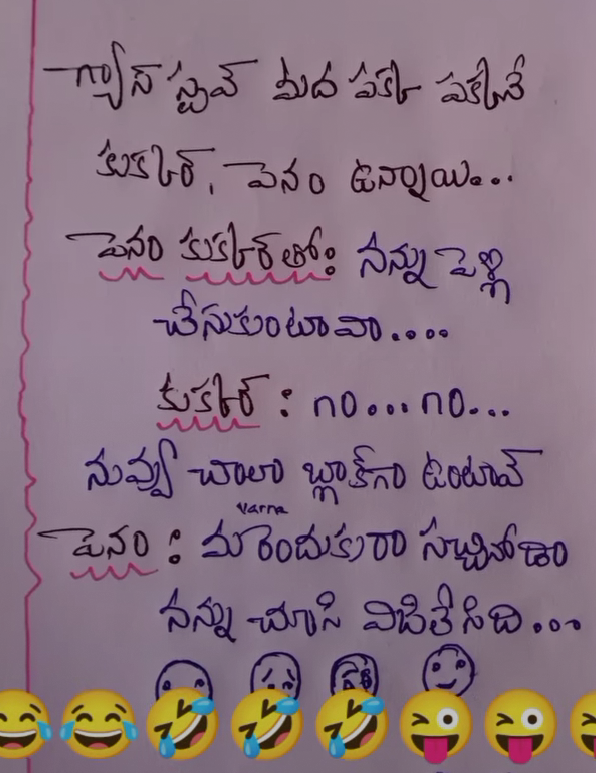 గ్యాస్ స్టవ్ మీద పక్క పక్కనే
కుక్కర్, పెనం ఉన్నాయి...
పెనం కుక్కర్‌తో: నన్ను పెళ్ళి
చేసుకుంటావా....
కుక్కర్ : no... no...
నువ్వు చాలా బ్లాక్‌గా ఉంటావ్
Varna
పెనం : మరెందుకురా సచ్చినోడా
నన్ను చూసి విజిలేసిది...